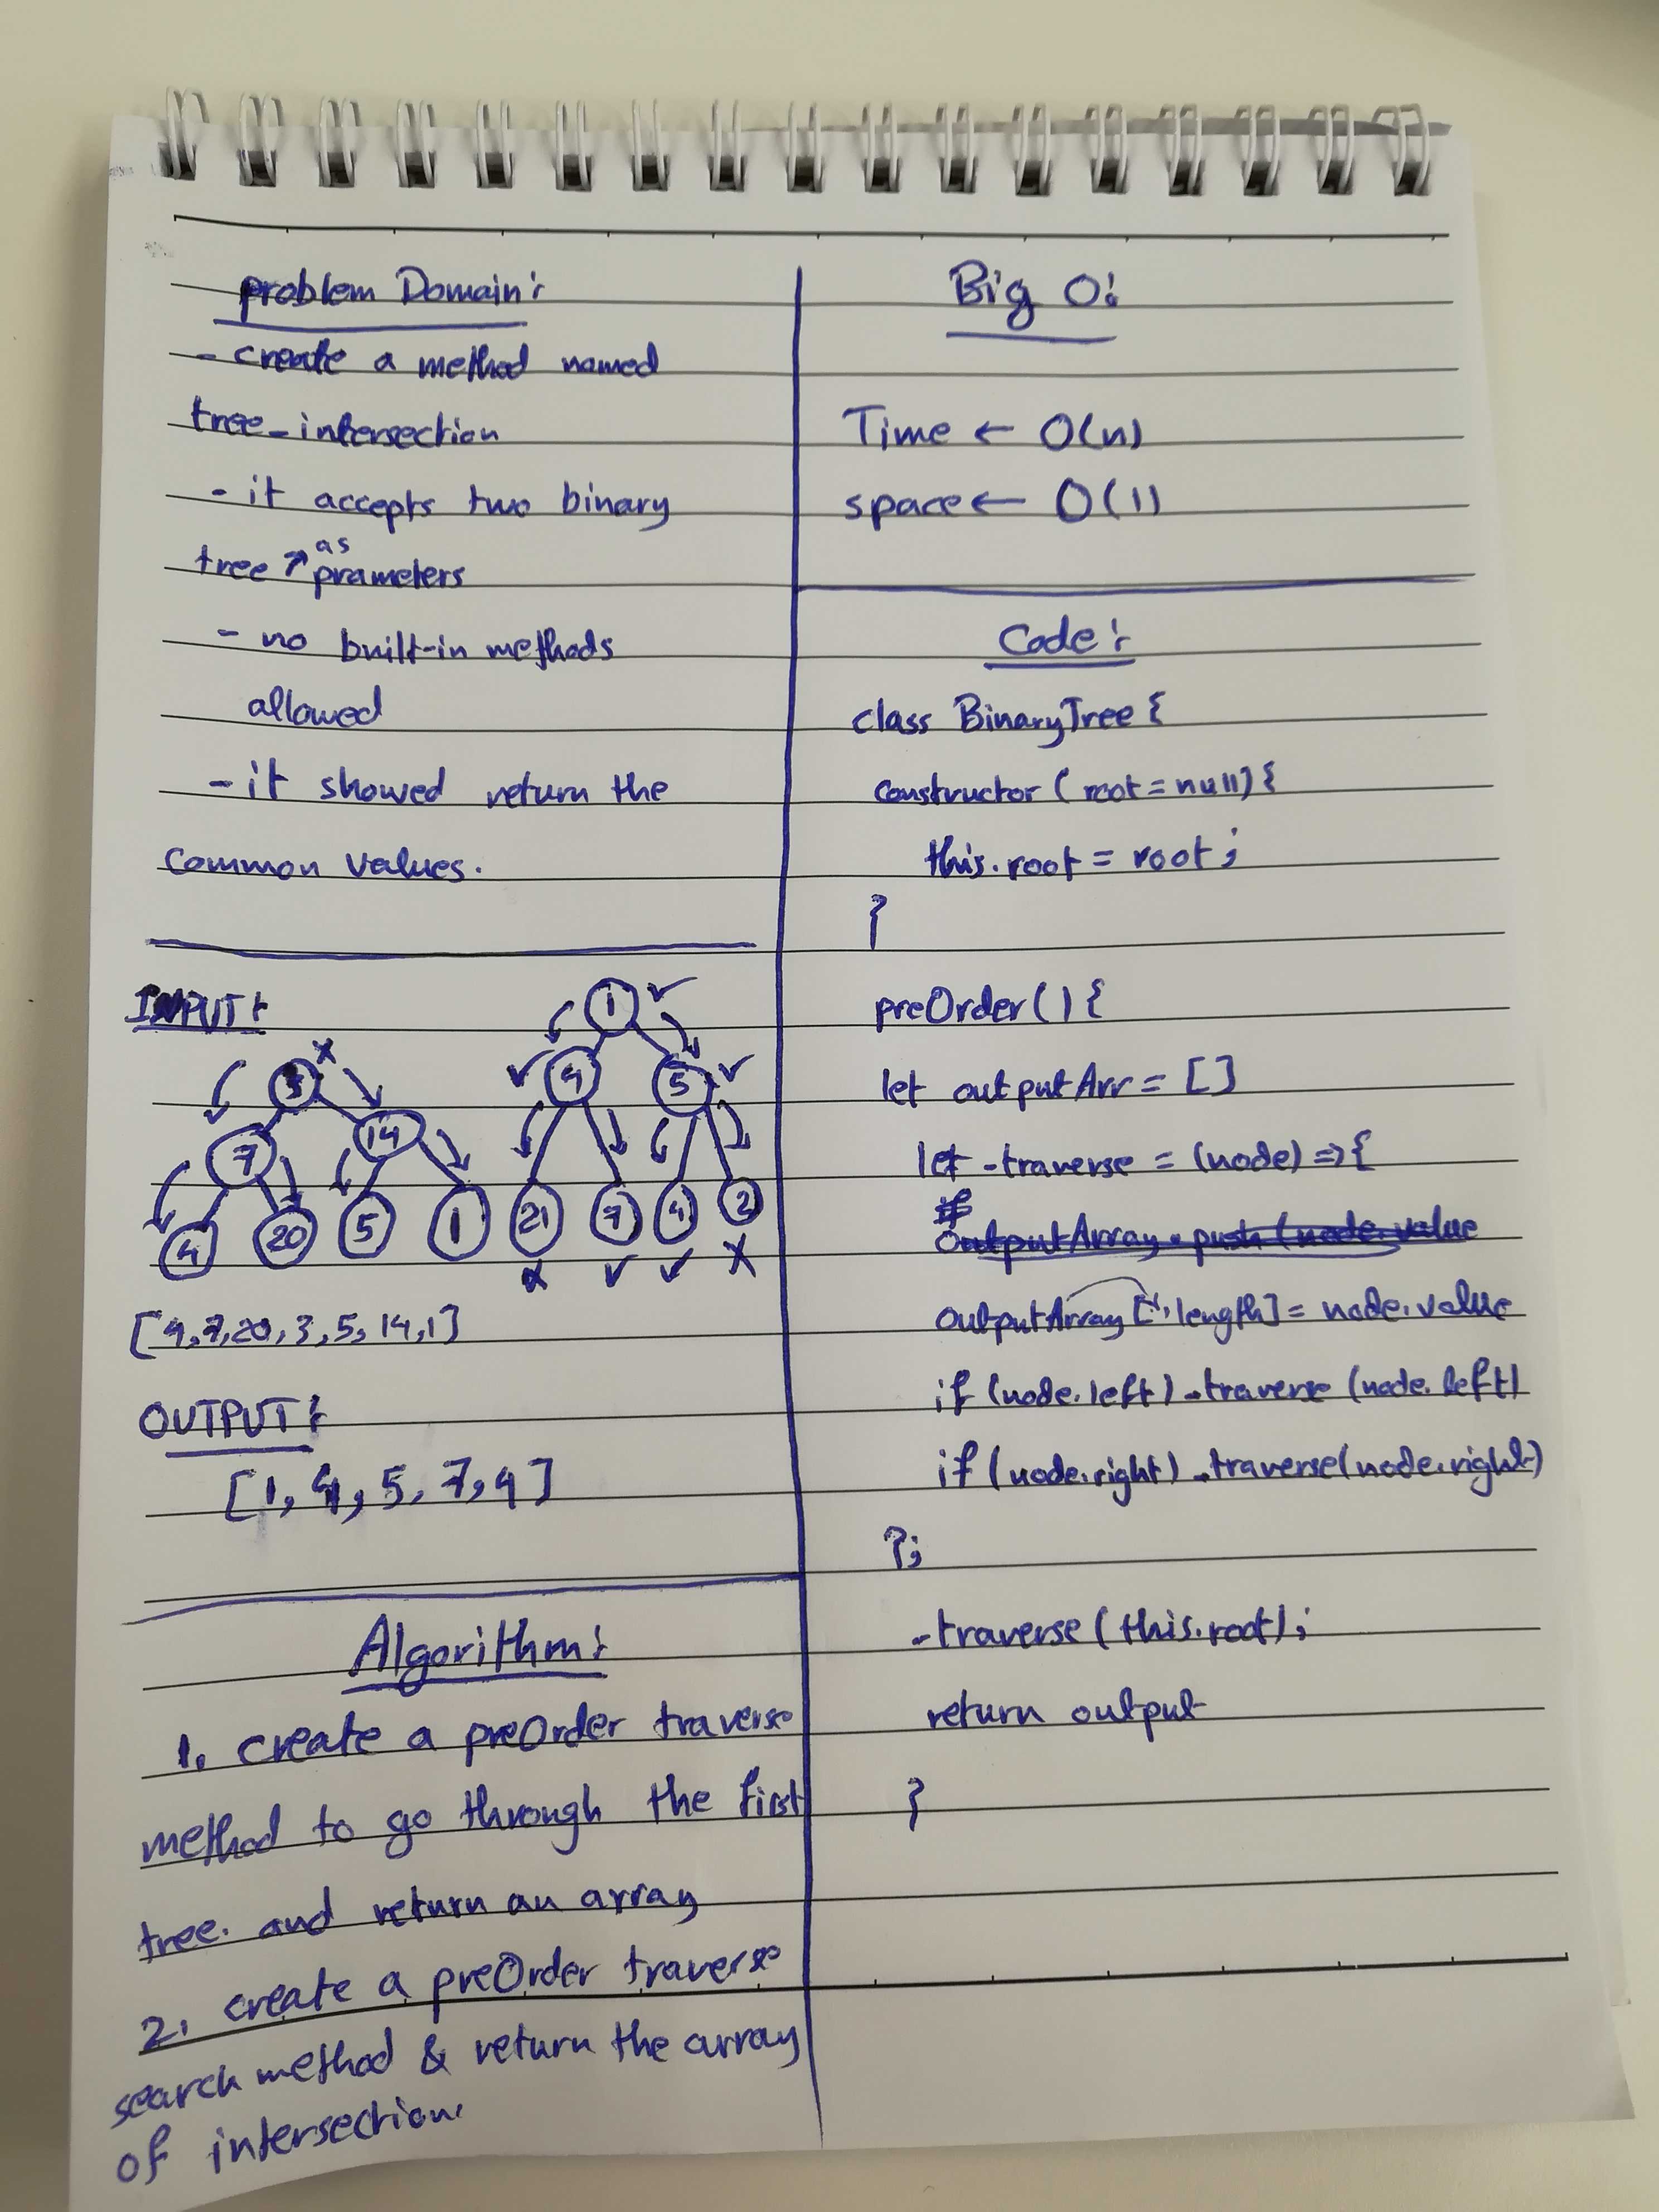 problem Domain:
- create a method named
tree_intersection
- it accepts two binary
tree ↗ as
prameters
- no built-in methods
allowed
- it showed return the
Common values.
INPUT:
3 x
7 14
4 20 5 1
1 ✓
✓ 4 5 ✓
21 7 4 2
x ✓ ✓ x
[4,7,20,3,5,14,1]
OUTPUT:
[1, 4, 5, 7, 4]
Algorithm:
1. create a preOrder traverse
method to go through the first
tree. and return an array
2. create a preOrder traverse
search method & return the array
of intersection.
Big O:
Time ← O(n)
space ← O(1)
Code:
class BinaryTree {
constructor (root = null) {
this.root = root;
}
preOrder() {
let outputArr = []
let _traverse = (node) => {
if
OutputArray.push(node.value
outputArray [".length] = node.value
if (node.left) _traverse (node.left)
if (node.right) _traverse(node.right)
};
_traverse (this.root);
return output
}